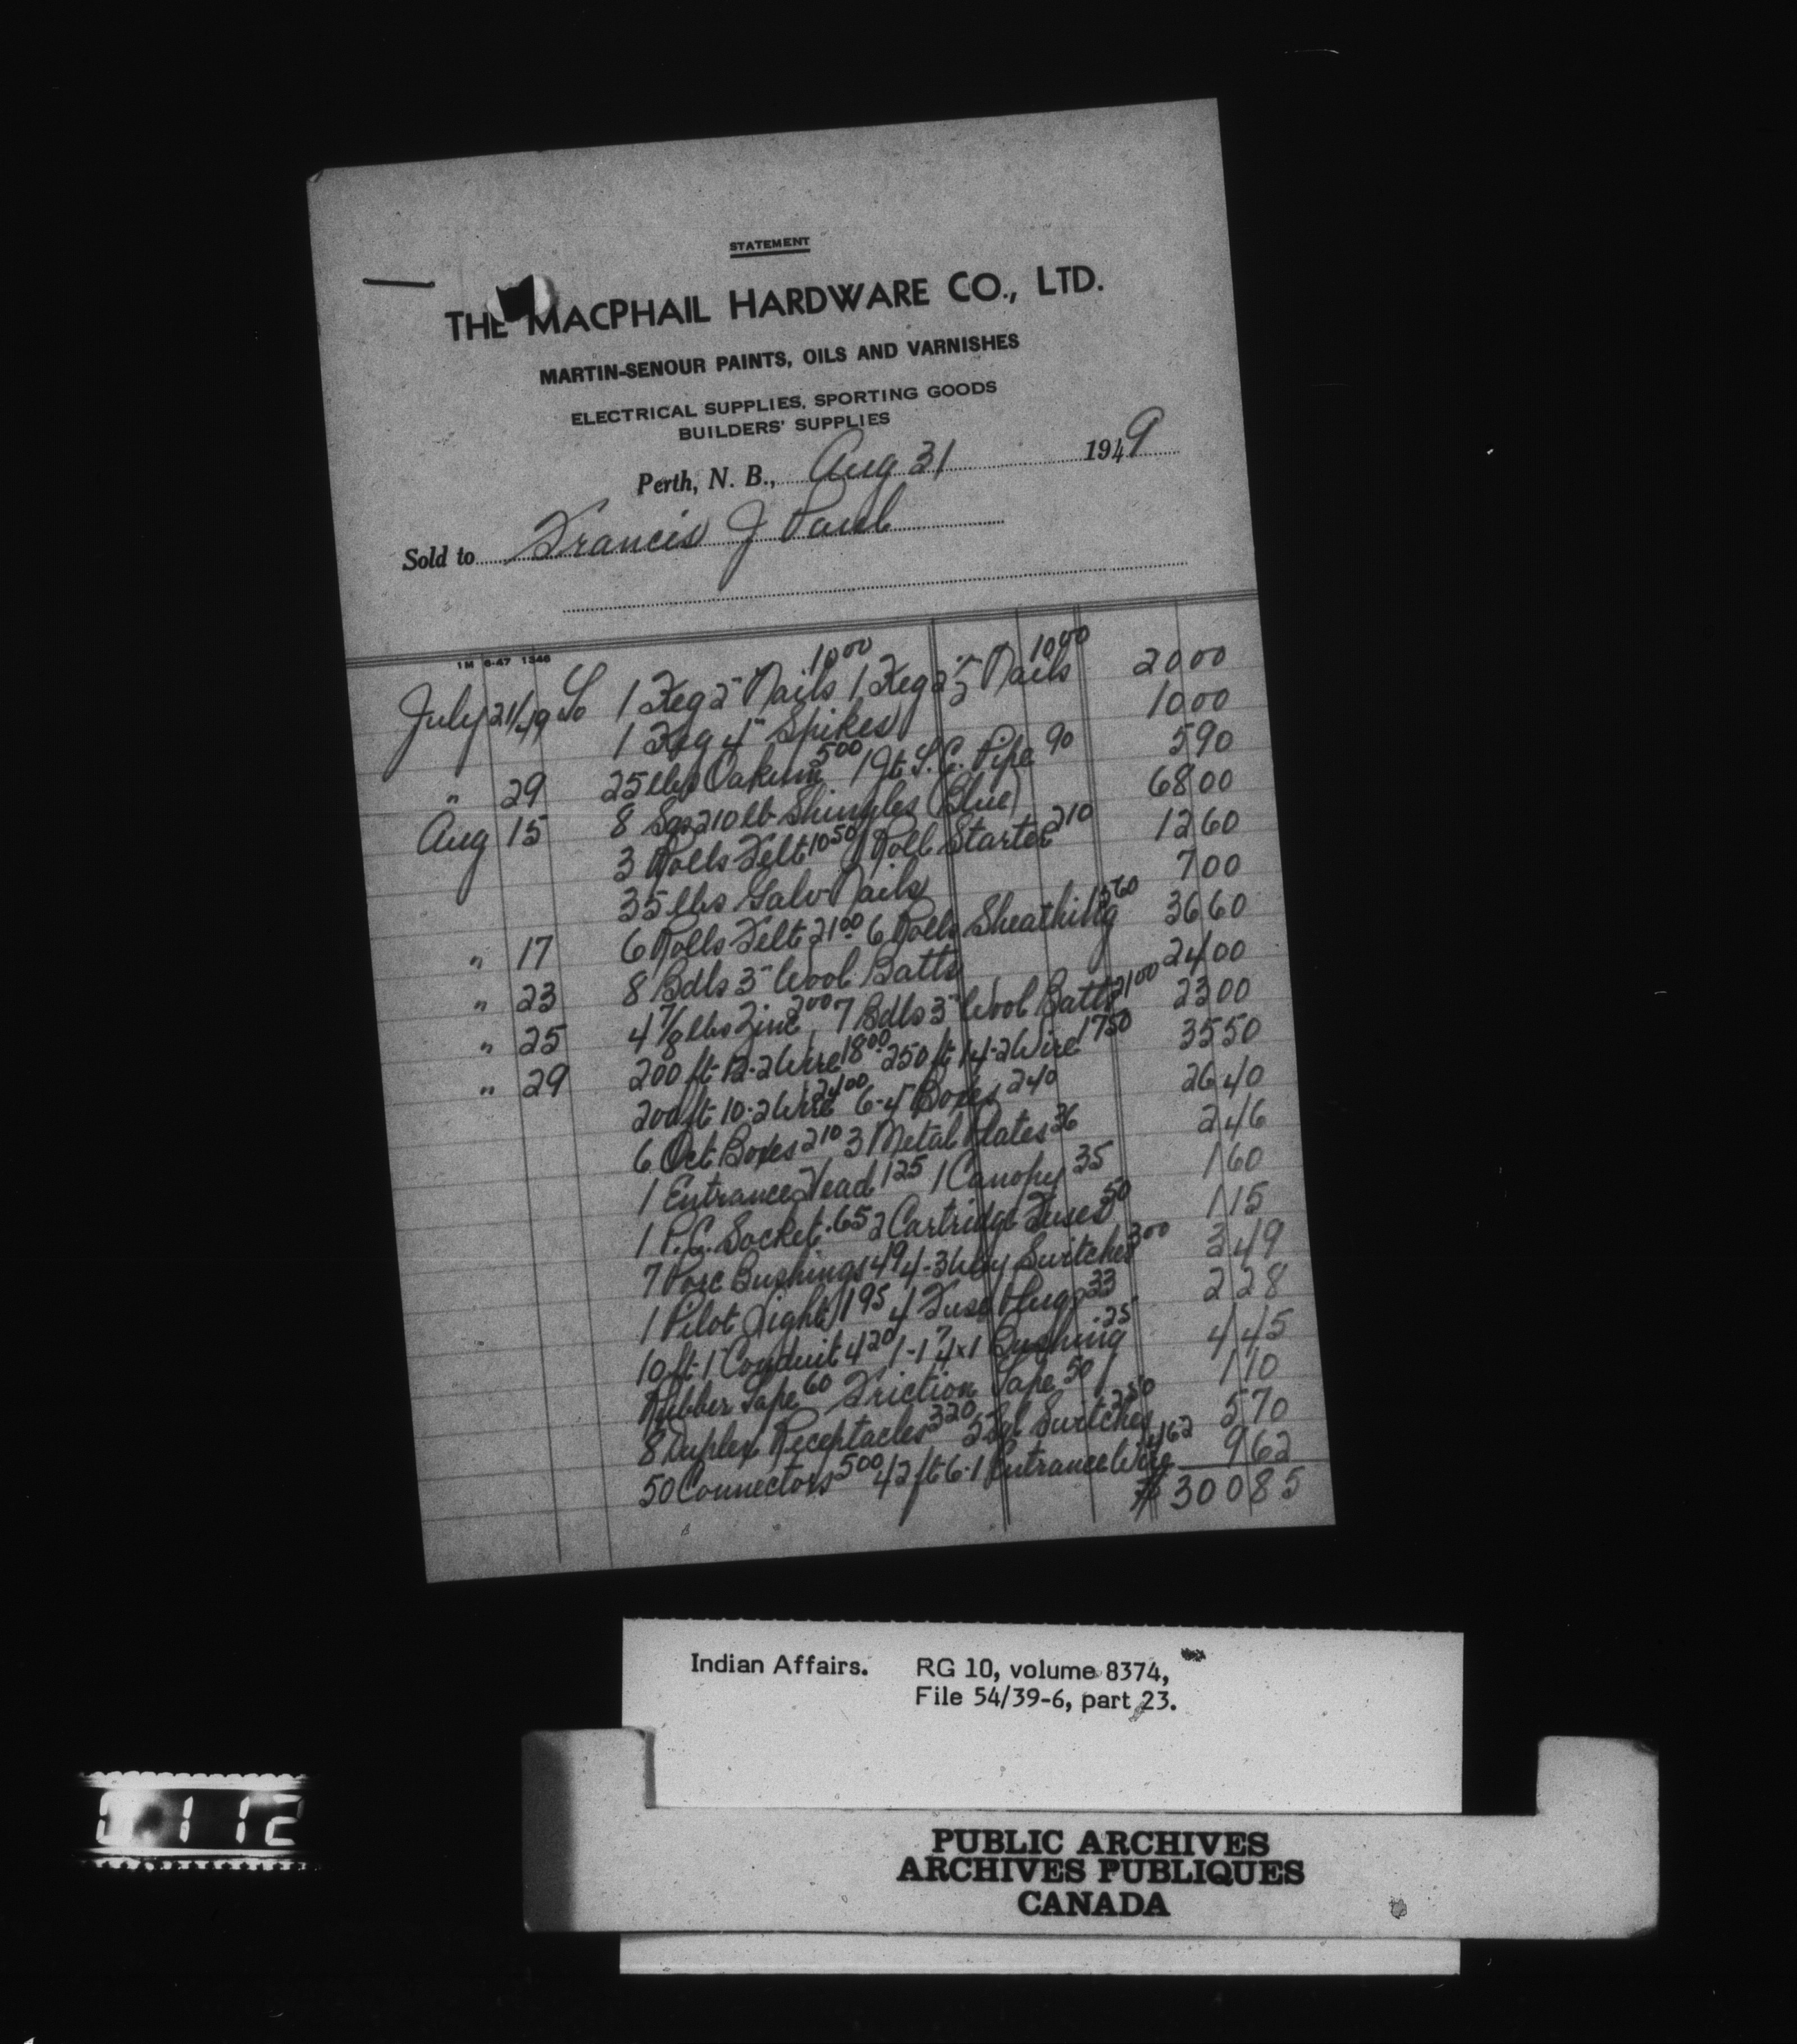 STATEMENT
THE MACPHAIL HARDWARE CO., LTD.
MARTIN-SENOUR PAINTS, OILS AND VARNISHES
ELECTRICAL SUPPLIES, SPORTING GOODS
BUILDERS' SUPPLIES
Perth, N. B., Aug 31 1949
Sold to Francis J Paul
1M 6-47 1346
July 21/49 To 1 Keg 2" Nails 10 00 1 Keg 2 1/2" Nails 10 00 20 00
1 Keg 4" Spikes 10 00
" 29 25 lbs Oakum 5 00 1 Jt S.C. Pipe 90 5 90
Aug 15 8 Sqs 210 lb Shingles (Blue) 68 00
3 Rolls Felt 10 50 1 Roll Starter 2 10 12 60
35 lbs Galv Nails 7 00
" 17 6 Rolls Felt 21 00 6 Rolls Sheathing 15 60 36 60
" 23 8 Bdls 3" Wool Batts 24 00
" 25 4 7/8 lbs Zinc 2 00 7 Bdls 3" Wool Batts 21 00 23 00
" 29 200 ft 12-2 Wire 18 00 250 ft 14-2 Wire 17 50 35 50
200 ft 10-2 Wire 24 00 6-4 Boxes 2 40 26 40
6 Oct Boxes 2 10 3 Metal Plates 36 2 46
1 Entrance Head 1 25 1 Canopy 35 1 60
1 P.C. Socket .65 2 Cartridge Fuses 50 1 15
7 Porc Bushings 49 4-3 Way Switches 3 00 3 49
1 Pilot Light 1 95 4 Fuse Plugs 33 2 28
10 ft 1" Conduit 4 20 1-1 1/4 x 1 Bushing 25 4 45
Rubber Tape 60 Friction Tape 50 1 10
8 Duplex Receptacles 3 20 5 Sgl Switches 2 50 5 70
50 Connectors 5 00 42 ft 6-1 Entrance Wire 4 62 9 62
$ 300 85
Indian Affairs. RG 10, volume 8374,
File 54/39-6, part 23.
PUBLIC ARCHIVES
ARCHIVES PUBLIQUES
CANADA
112